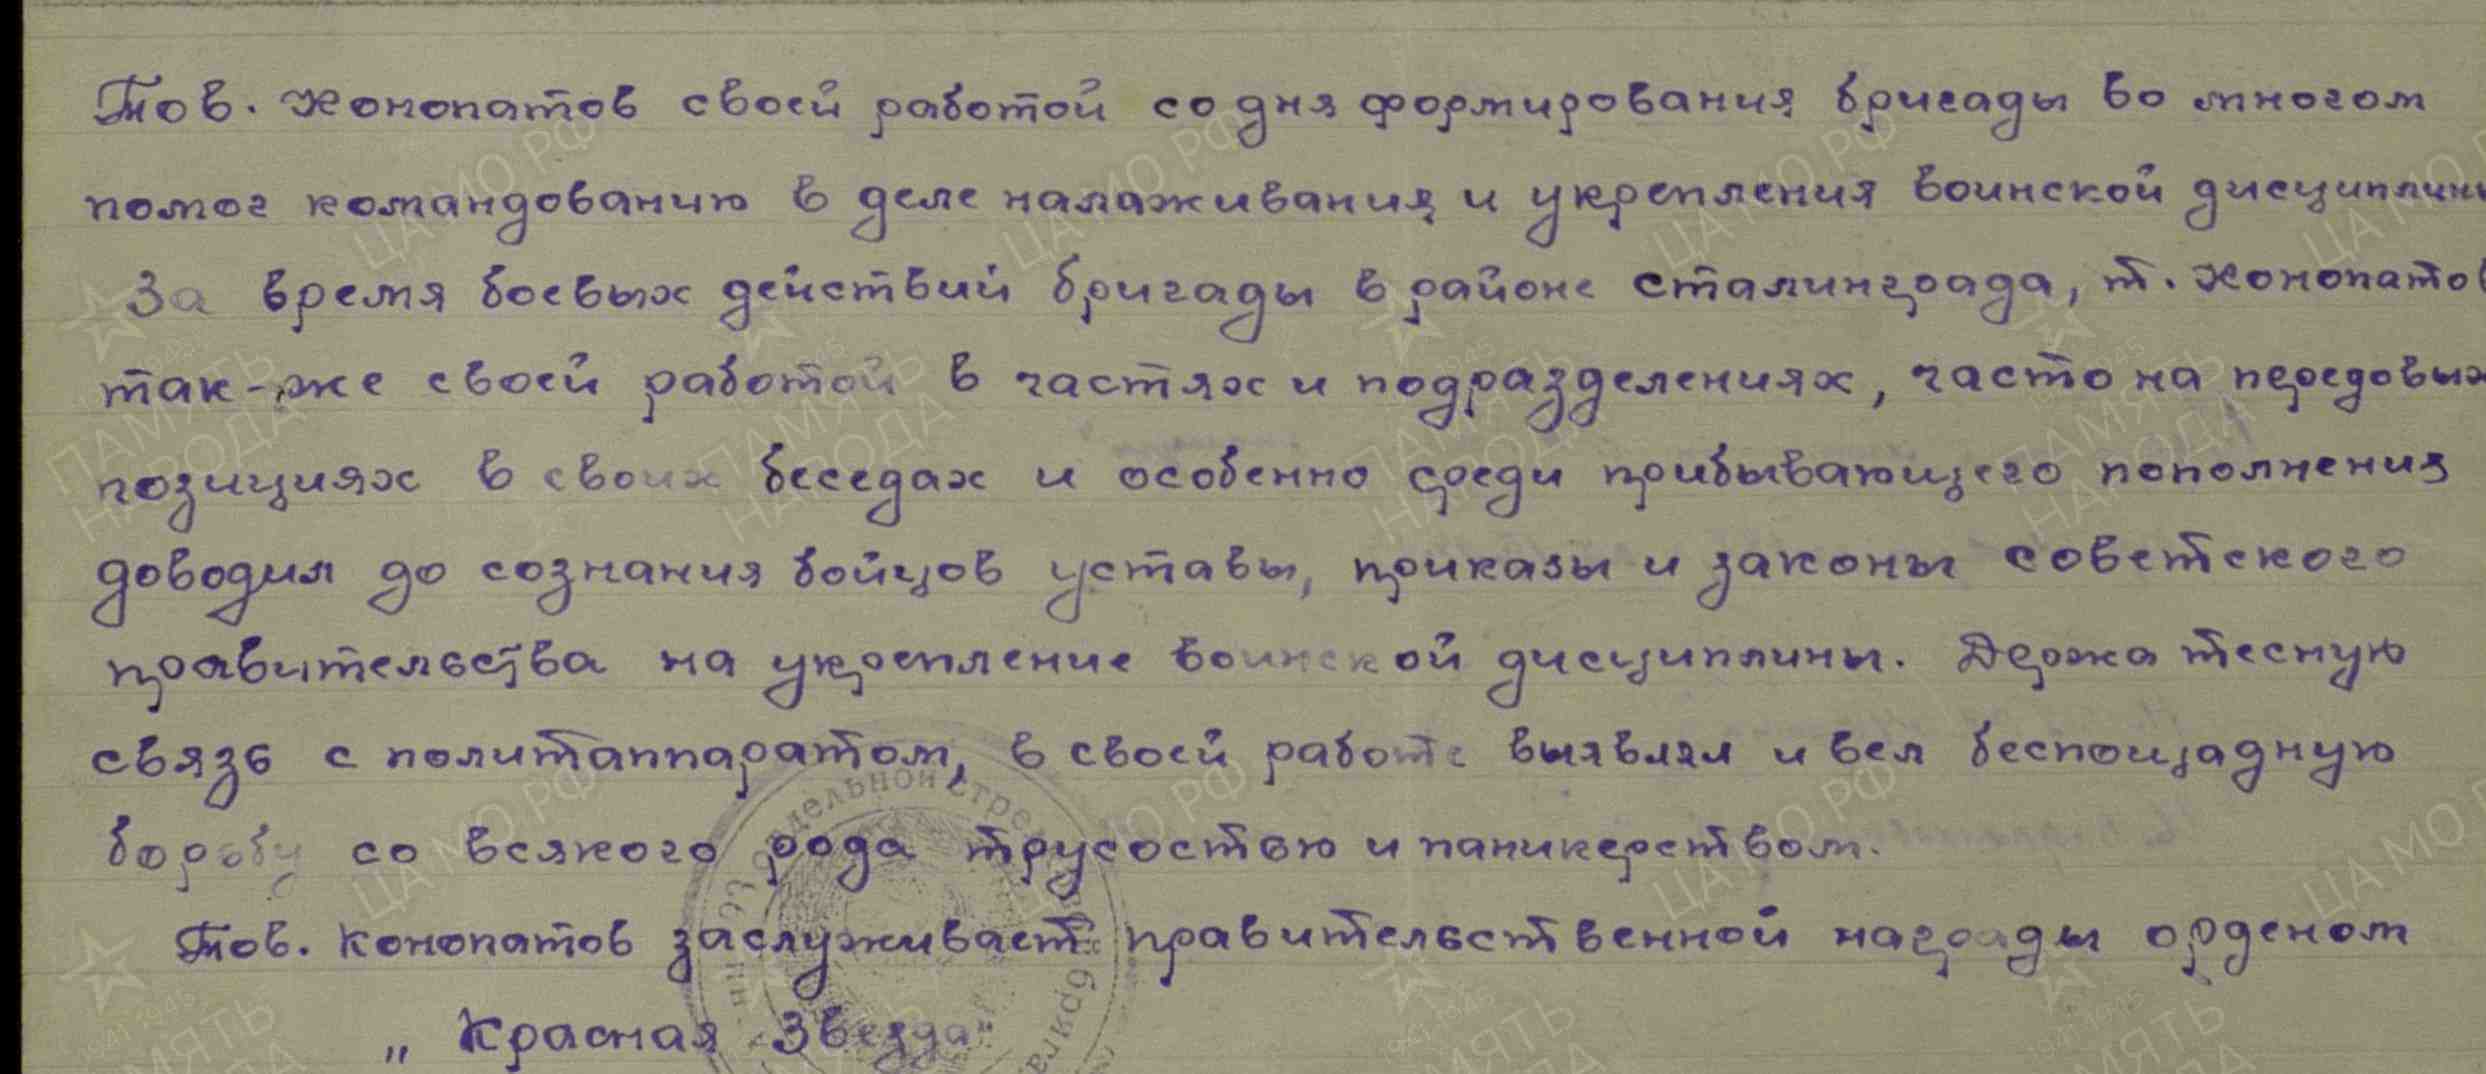 Тов. Конопатов своей работой со дня формирования бригады во многом
помог командованию в деле налаживания и укрепления воинской дисциплины
За время боевых действий бригады в районе сталинграда, т. Конопатов
так-же своей работой в частях и подразделениях, часто на передовых
позициях в своих беседах и особенно среди прибывающего пополнения
доводил до сознания бойцов уставы, приказы и законы советского
правительства на укрепление воинской дисциплины. Держа тесную
связь с политаппаратом, в своей работе выявлял и вел беспощадную
борьбу со всякого рода трусостью и паникерством.
Тов. Конопатов заслуживает правительственной награды орденом
„ Красная Звезда
ЦАМО РФ
ПАМЯТЬ
НАРОДА
1941 1945